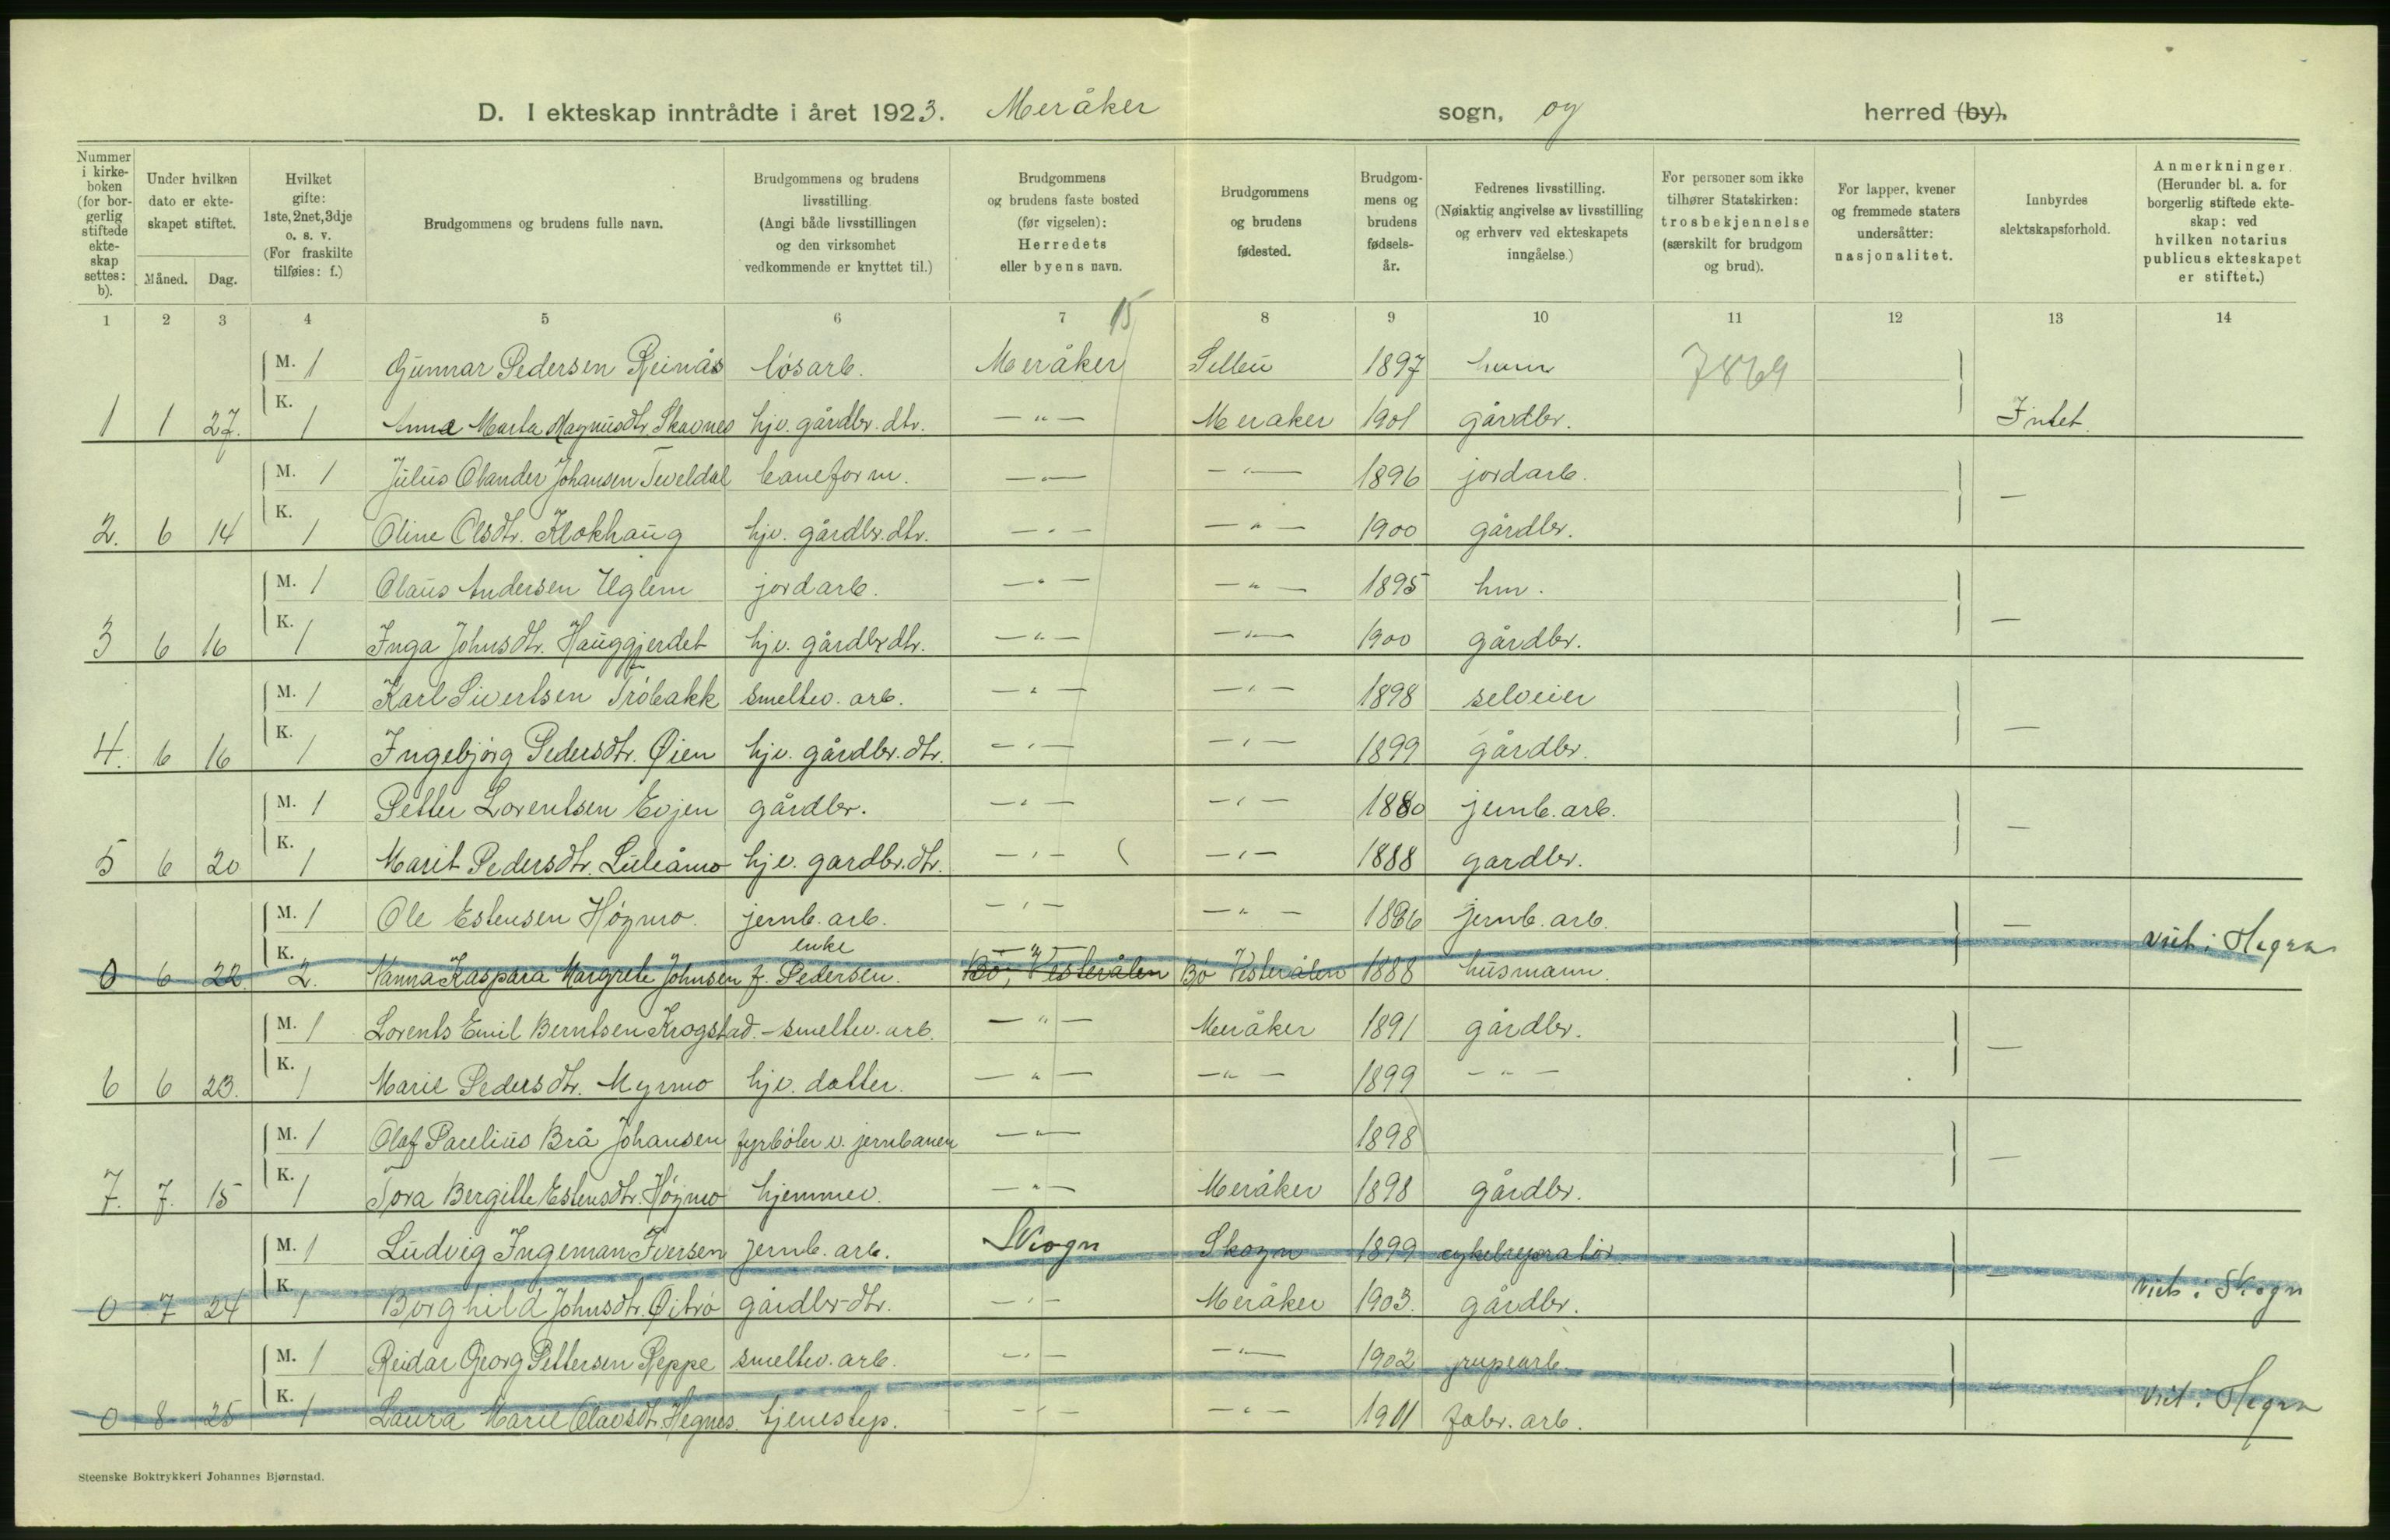 D. I ekteskap inntrådte i året 1923. Meråker sogn, og herred (by).
Nummer i kirkeboken (for borgerlig stiftede ekteskap settes: b).
Under hvilken dato er ekteskapet stiftet.
Måned. Dag.
Hvilket gifte: 1ste, 2net, 3dje o. s. v. (For fraskilte tilføies: f.)
Brudgommens og brudens fulle navn.
Brudgommens og brudens livsstilling. (Angi både livsstillingen og den virksomhet vedkommende er knyttet til.)
Brudgommens og brudens faste bosted (før vigselen): Herredets eller byens navn.
Brudgommens og brudens fødested.
Brudgommens og brudens fødselsår.
Fedrenes livsstilling. (Nøiaktig angivelse av livsstilling og erhverv ved ekteskapets inngåelse.)
For personer som ikke tilhører Statskirken: trosbekjennelse (særskilt for brudgom og brud).
For lapper, kvener og fremmede staters undersåtter: nasjonalitet.
Innbyrdes slektskapsforhold.
Anmerkninger. (Herunder bl. a. for borgerlig stiftede ekteskap: ved hvilken notarius publicus ekteskapet er stiftet.)
1 2 3 4 5 6 7 15 8 9 10 11 12 13 14
M. 1 Gunnar Pedersen Reinås løsarb. Meråker 1897 husm 7869
1 1 27. K. 1 Anna Marta Magnusdtr. Skavnes hjv. gårdbr. dtr. —"— Meraker 1901 gårdbr. Intet.
M. 1 Julius Olander Johansen Teveldal baneform. —"— —"— 1896 jordarb.
2. 6 14 K. 1 Oline Olsdtr. Klokhaug hjv. gårdbr. dtr. —"— —"— 1900 gårdbr. —
M. 1 Olaus Andersen Uglem jordarb. —"— —"— 1895 hm.
3 6 16 K. 1 Inga Johnsdtr. Hauggjerdet hjv. gårdbr dtr. —"— —"— 1900 gårdbr. —
M. 1 Karl Sivertsen Trøbakk smeltev. arb. —"— —"— 1898 selveier
4. 6 16 K. 1 Ingebjørg Pedersdtr. Øien hjv. gårdbr. dtr. —"— —"— 1899 gårdbr. —
M. 1 Petter Lorentsen Evjen gårdbr. —"— —"— 1880 jernb. arb.
5 6 20 K. 1 Marit Pedersdtr. Luleåmo hjv. gardbr. dtr. —"— —"— 1888 gardbr. —
M. 1 Ole Estensen Høgmo. jernb. arb. —"— —"— 1886 jernb. arb. —
enke —"—
0 6 22. K. 2. Nanna Kaspara Margrete Johnsen f. Pedersen. Bø, Vesterålen Bø Vesterålen 1888 husmann. viet i Hegra
M. 1 Lorents Emil Berntsen Krogstad. - smeltev. arb. —"— Meråker 1891 gårdbr.
6 6 23. K. 1 Marie Pedersdtr. Myrmo hjv. datter. —"— —"— 1899 —"— —
M. 1 Olaf Parelius Brå Johansen fyrbøter v. jernbanen —"— 1898
7. 7. 15 K. 1 Tora Bergitte Estensdtr. Høgmo hjemmev. —"— Meråker 1898 gårdbr. —
M. 1 Ludvig Ingeman Iversen jernb. arb. Skogn Skogn 1899 cykelreparatør
0 7 24 K. 1 Borghild Johnsdtr. Øitrø gårdbr-dtr. —"— Meråker 1903. gårdbr. — viet i Skogn
M. 1 Reidar Georg Pettersen Reppe smeltev. arb. —"— —"— 1902 grupearb.
0 8 25 K. 1 Laura Marie Olavsdtr. Hegnes. tjenestep. —"— —"— 1901 fabr. arb. viet i Hegra
Steenske Boktrykkeri Johannes Bjørnstad.